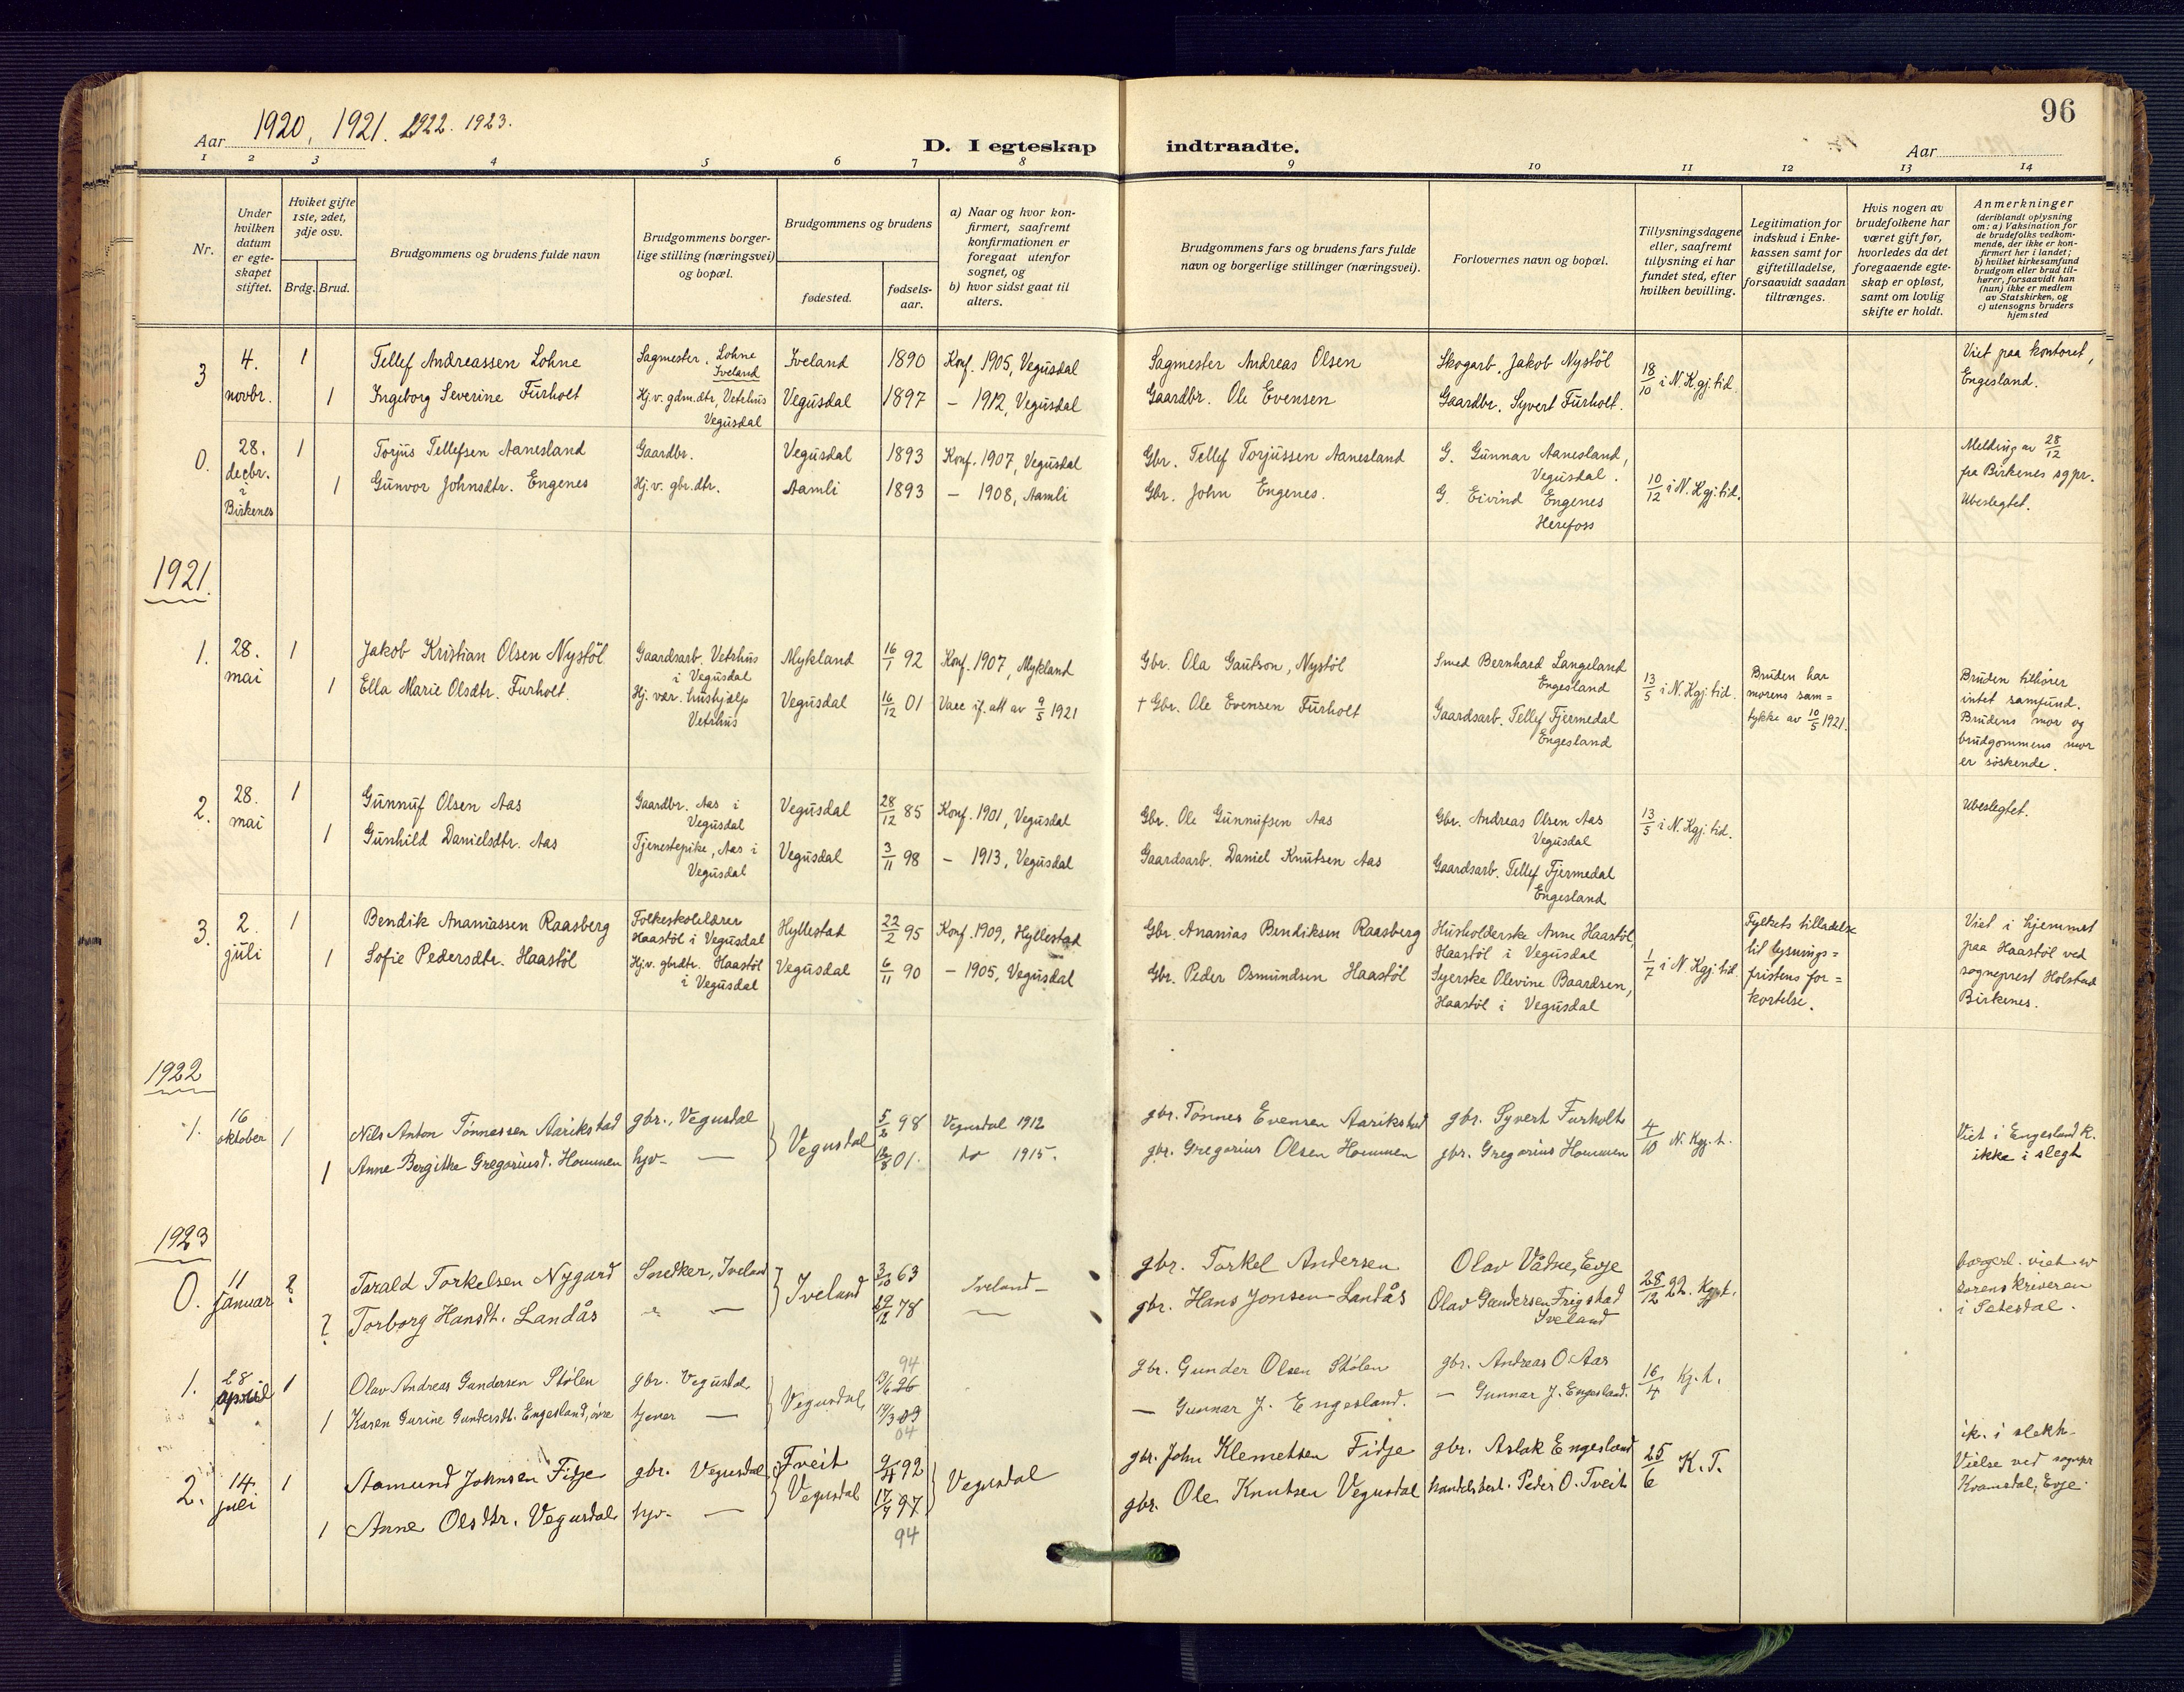 96
Aar 1920, 1921. 1922. 1923.
D. I egteskap indtraadte.
Aar
1 2 3 4 5 6 7 8 9 10 11 12 13 14
Nr.
Under hvilken datum er egteskapet stiftet.
Hvilket gifte 1ste, 2det, 3dje osv.
Brdg. Brud.
Brudgommens og brudens fulde navn
Brudgommens borgerlige stilling (næringsvei) og bopæl.
Brudgommens og brudens
fødested.
fødselsaar.
a) Naar og hvor konfirmert, saafremt konfirmationen er foregaat utenfor sognet, og
b) hvor sidst gaat til alters.
Brudgommens fars og brudens fars fulde navn og borgerlige stillinger (næringsvei).
Forlovernes navn og bopæl.
Tillysningsdagene eller, saafremt tillysning ei har fundet sted, efter hvilken bevilling.
Legitimation for indskud i Enkekassen samt for giftetilladelse, forsaavidt saadan tiltrænges.
Hvis nogen av brudefolkene har været gift før, hvorledes da det foregaaende egteskap er opløst, samt om lovlig skifte er holdt.
Anmerkninger
(deriblandt oplysning om: a) Vaksination for de brudefolks vedkommende, der ikke er konfirmert her i landet; b) hvilket kirkesamfund brudgom eller brud tilhører, forsaavidt han (hun) ikke er medlem av Statskirken, og c) utensogns bruders hjemsted
3 4. novbr. 1 Tellef Andreassen Lohne Sagmester. Lohne Iveland Iveland 1890 Konf. 1905, Vegusdal Sagmester Andreas Olsen Skogarb. Jakob Nystöl 18/10 i N. Kgj. tid. Viet paa kontoret, Engesland.
1 Ingeborg Severine Furholt Hj.v. gdm.dtr, Vetrhus Vegusdal Vegusdal 1897 – 1912, Vegusdal Gaardbr. Ole Evensen Gaardbr. Syvert Furholt.
0. 28. decbr. i Birkenes 1 Torjus Tellefsen Aanesland Gaardbr. Vegusdal 1893 Konf. 1907, Vegusdal Gbr. Tellef Torjussen Aanesland G. Gunnar Aanesland, Vegusdal. 10/12 i N. Kgj. tid. Melding av 28/12 fra Birkenes sgpr. Ubeslegtet.
1 Gunvor Johnsdtr. Engenes Hj.v. gbr.dtr. Aamli 1893 – 1908, Aamli Gbr. John Engenes. G. Eivind Engenes Herefoss
1921.
1. 28. mai 1 Jakob Kristian Olsen Nystöl Gaardsarb. Vetrhus i Vegusdal Mykland 16/1 92 Konf. 1907, Mykland Gbr. Ola Gautson, Nystöl Smed Bernhard Langeland Engesland 13/5 i N. Kgj. tid. Bruden har morens samtykke av 10/5 1921. Bruden tilhører intet samfund. Brudens mor og brudgommens mor er söskende.
1 Ella Marie Olsdtr. Furholt. Hj. vær. hushjælp Vetrhus Vegusdal 16/12 01 Vacc if. att av 9/5 1921 † Gbr. Ole Evensen Furholt Gaardsarb. Tellef Fjermedal Engesland
2. 28. mai 1 Gunnuf Olsen Aas Gaardbr. Aas i Vegusdal Vegusdal 28/12 85 Konf. 1901, Vegusdal Gbr. Ole Gunnufsen Aas Gbr. Andreas Olsen Aas Vegusdal 13/5 i N. Kgj. tid. Ubeslegtet.
1 Gunhild Danielsdtr. Aas Tjenestepike, Aas i Vegusdal Vegusdal 3/11 98 – 1913, Vegusdal Gaardsarb. Daniel Knutsen Aas Gaardsarb. Tellef Fjermedal Engesland
3. 2. juli 1 Bendik Ananiassen Raasberg Folkeskolelærer Haastöl i Vegusdal Hyllestad 22/2 95 Konf. 1909, Hyllestad Gbr. Ananias Bendiksen Raasberg Husholderske Anne Haastöl, Haastöl i Vegusdal 1/7 i N. Kgj. tid. Fylkets tilladelse til lysningsfristens forkortelse. Viet i hjemmet paa Haastöl ved sogneprest Holstad Birkenes.
1 Sofie Pedersdtr. Haastöl Hj.v. gbrdtr. Haastöl i Vegusdal Vegusdal 6/11 90 – 1905, Vegusdal Gbr. Peder Osmundsen Haastöl Syerske Olevine Baardsen, Haastöl i Vegusdal
1922
1. 16 oktober 1 Nils Anton Tönnessen Aarikstad gbr., Vegusdal Vegusdal 5/2 98 Vegusdal 1912 gbr. Tönnes Evensen Aarikstad gbr. Syvert Furholt 4/10 N. Kgj. t. Viet i Engesland k. ikke i slegt
1 Anne Bergitte Gregoriusd. Hommen hjv. — 01. do 1915. gbr. Gregorius Olsen Hommen gbr. Gregorius Hommen
1923
0. 11 januar ? Tarald Torkelsen Nygard Snedker, Iveland Iveland 3/10 63 Iveland – gbr. Torkel Andersen Olav Vådne, Evje 28/12 22. Kgj.t. borgerl. viet av sorenskriveren i Setesdal.
? Torborg Hansdt. Landås — 78 — gbr. Hans Jonsen Landås Olav Gundersen Frigstad Iveland
1. 28 april 1 Olav Andreas Gundersen Stölen gbr. Vegusdal, Vegusdal, 94 gbr. Gunder Olsen Stölen gbr. Andreas O. Aas 16/4 Kj. t.
1 Karen Gurine Gundersdt. Engesland, övre tjener — 19/3 09 04 — Gunnar J. Engesland. — Gunnar J. Engesland.
2. 14. juli 1 Aamund Johnsen Fidje gbr. Vegusdal, Tveit 92 Vegusdal gbr. John Klemetsen Fidje gbr. Aslak Engesland 25/6 K.T. ik. i slekt. Vielse ved sognepr Kvamsdal, Evje.
1 Anne Olsdtr. Vegusdal hjv. — Vegusdal 97 94 gbr. Ole Knutsen Vegusdal handelsbest. Peder O. Tveit